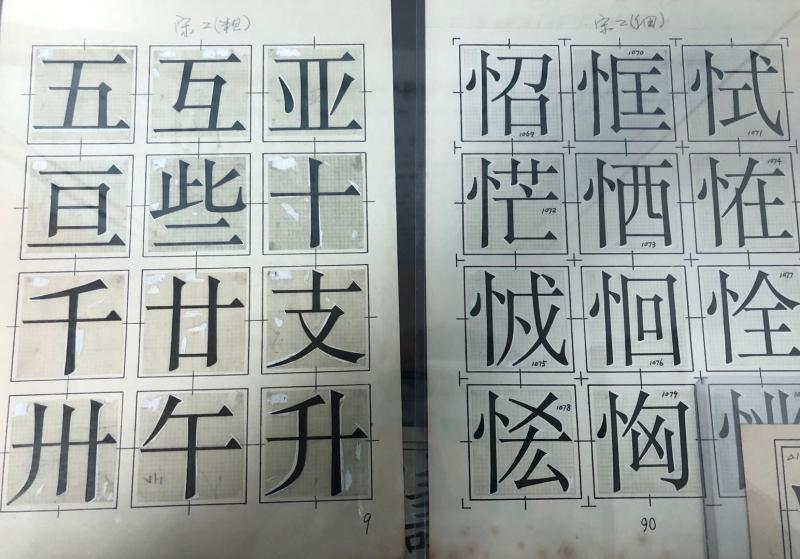 宋二(粗)
五 互 亚
亘 些 十
千 廿 支
卅 午 升
9
宋二(细)
怊 恇 恜
1069 1070 1071
恾 恓 恠
1072 1073 1074
恛 恮
1075 1076 1077
恟
1078 1079
90